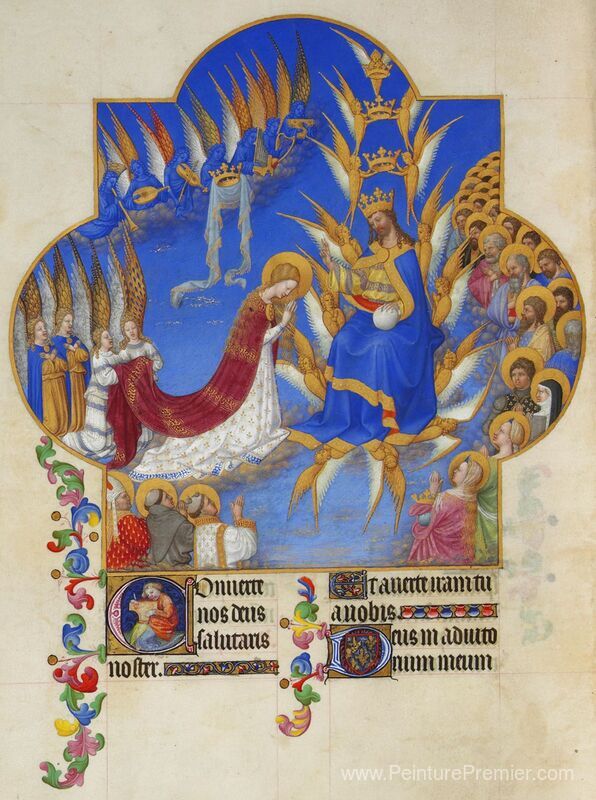 Converte
nos deus
salutaris
noster.
Et averte iram tu
a nobis.
Deus in adiuto
rium meum
www.PeinturePremier.com